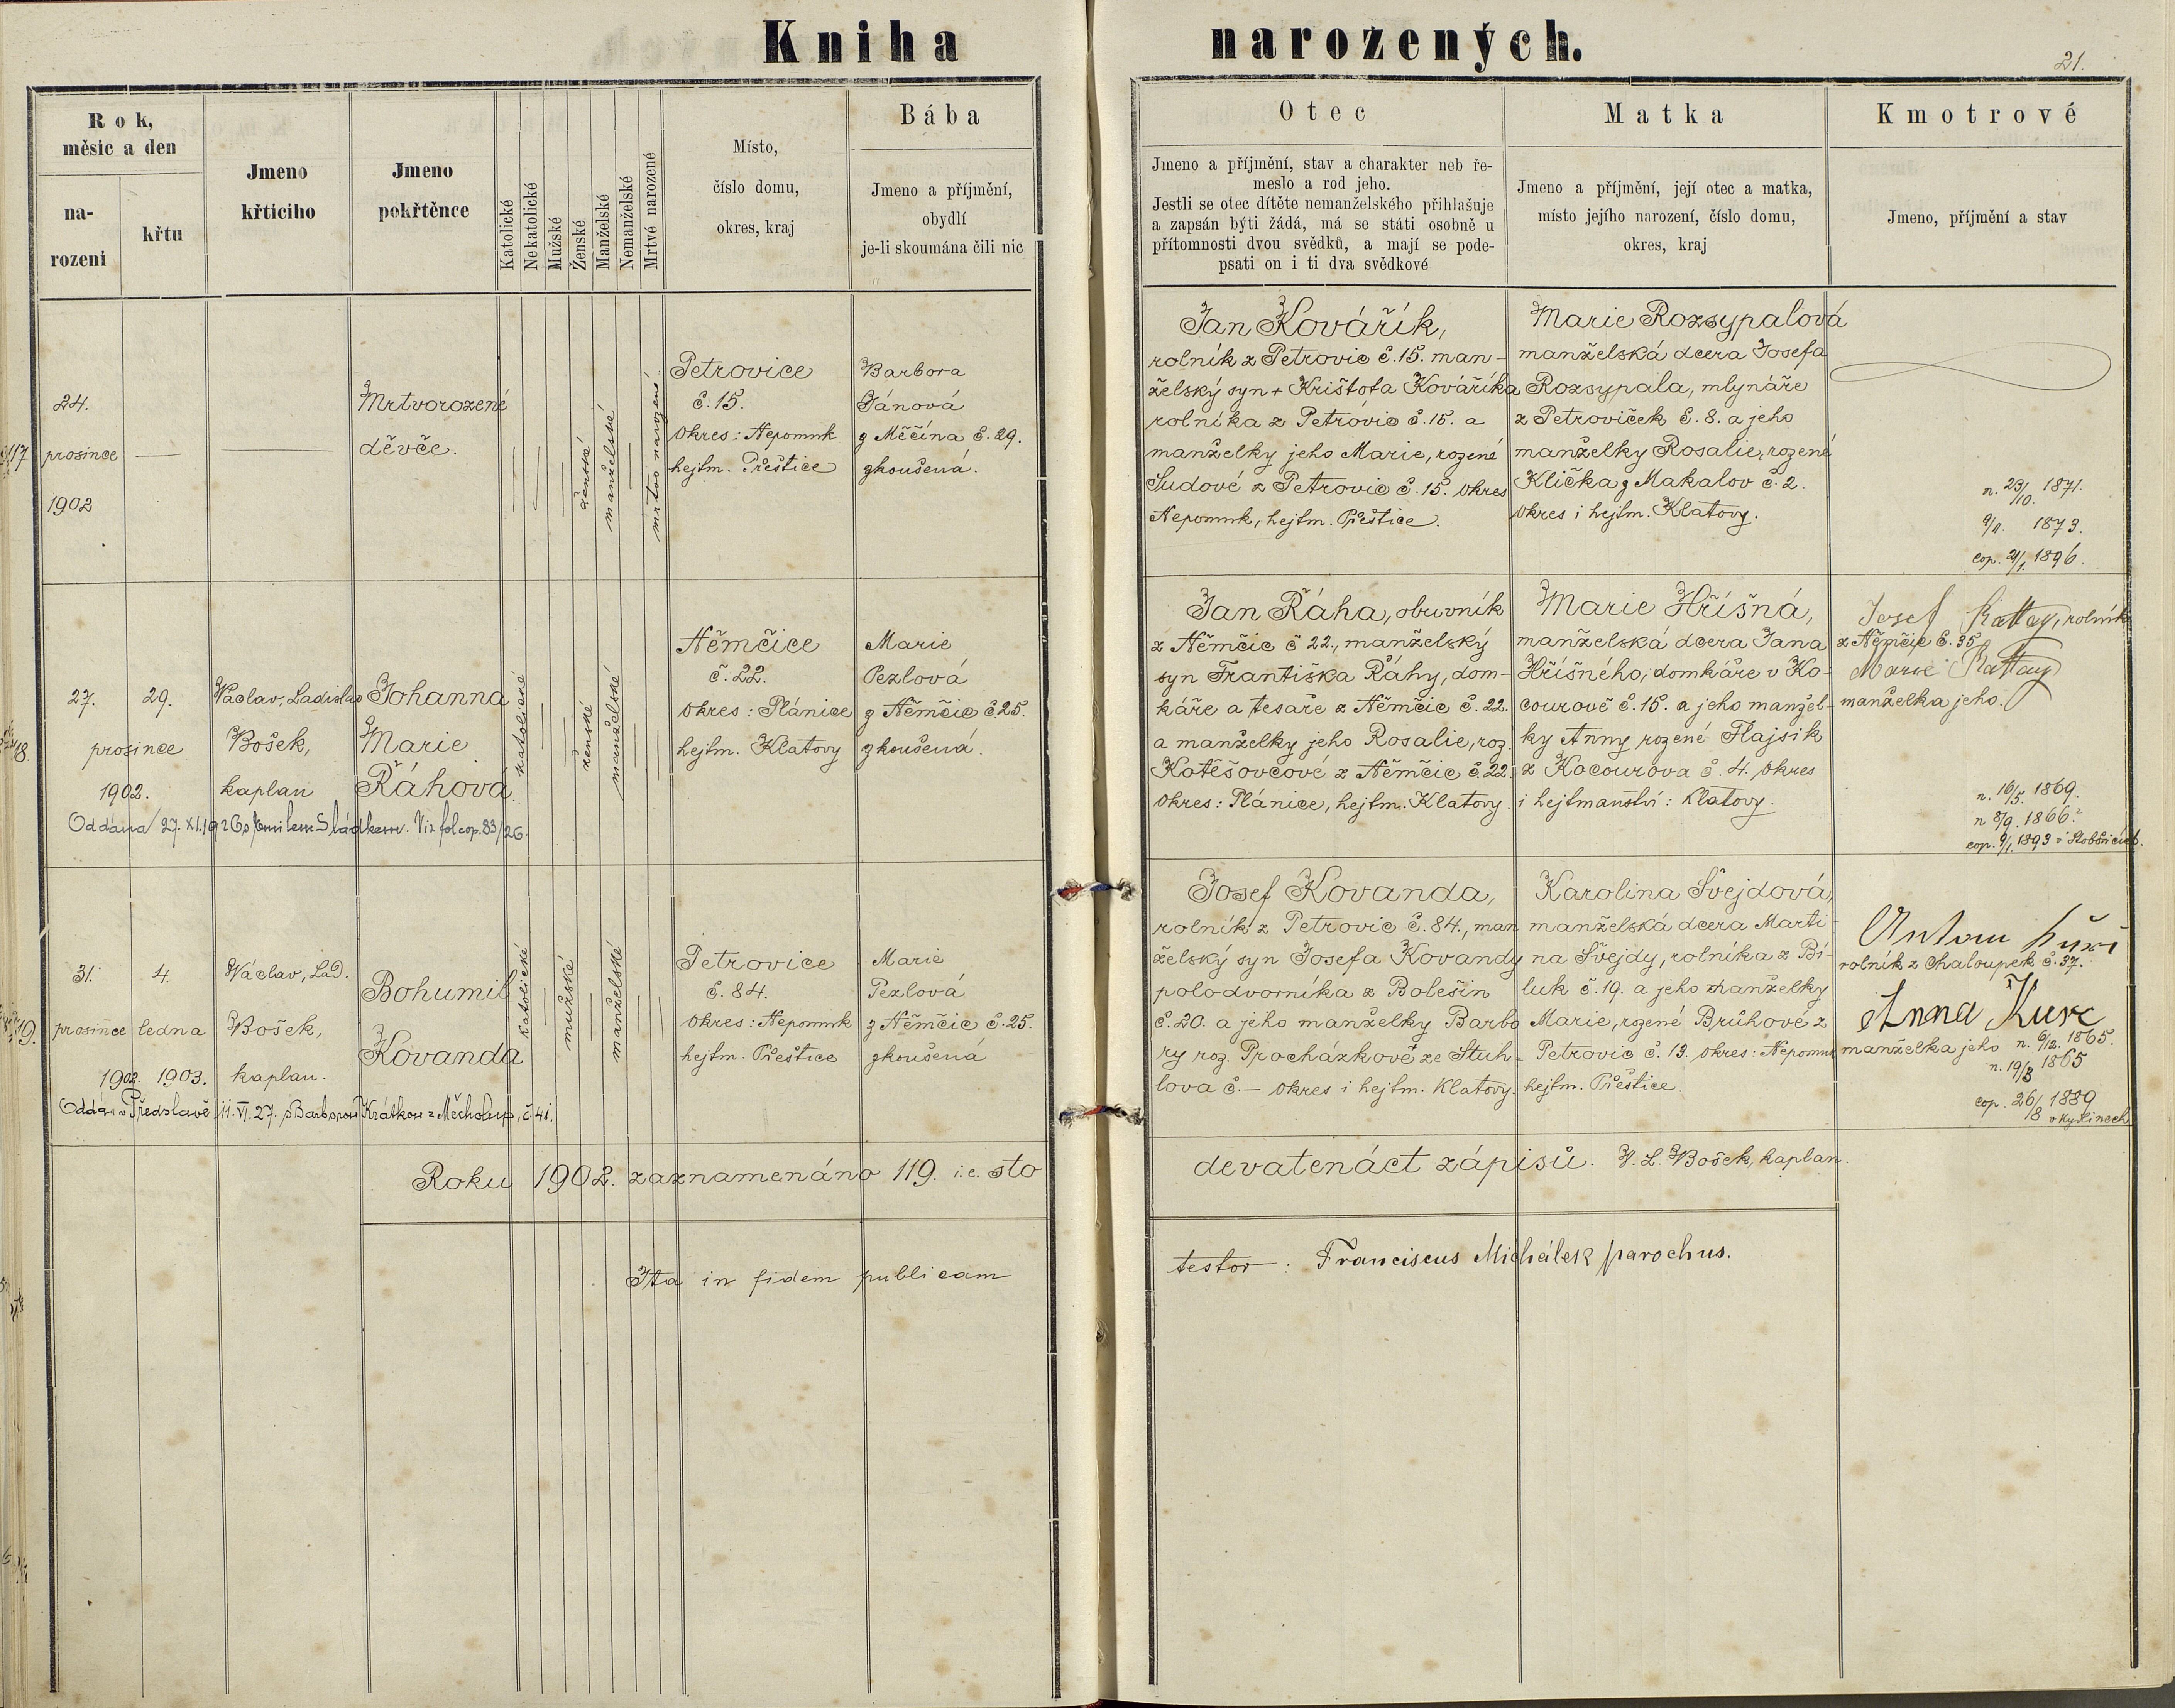 Kniha narozených.
21.
Rok,
měsic a den
na-
rozeni
křtu
Jmeno
křticiho
Jmeno
pokřtěnce
Katolické
Nekatolické
Mužské
Ženské
Manželské
Nemanželské
Mrtvé narozené
Místo,
číslo domu,
okres, kraj
Bába
Jmeno a příjmění,
obydlí
je-li skoumána čili nic
Otec
Jmeno a příjmění, stav a charakter neb ře-
meslo a rod jeho.
Jestli se otec dítěte nemanželského přihlašuje
a zapsán býti žádá, má se státi osobně u
přítomnosti dvou svědků, a mají se pode-
psati on i ti dva svědkové
Matka
Jmeno a příjmění, její otec a matka,
místo jejího narození, číslo domu,
okres, kraj
Kmotrové
Jmeno, příjmění a stav
117
24.
prosince
1902
Mrtvorozené
děvče.
ženské
manželské
mrtvo narozené
Petrovice
č. 15.
Okres: Nepomuk
hejtm. Přeštice
Barbora
Jánová
z Měčína č. 29.
zkoušená.
Jan Kovářík,
rolník z Petrovic č. 15. man-
želský syn + Krištofa Kováříka
rolníka z Petrovic č. 15. a
manželky jeho Marie, rozené
Sudové z Petrovic č. 15. Okres
Nepomuk, hejtm. Přeštice.
Marie Rozsypalová
manželská dcera Josefa
Rozsypala, mlynáře
z Petroviček č. 8. a jeho
manželky Rosalie, rozené
Klička z Makalov č. 2.
Okres i hejtm. Klatovy.
n. 23/10. 1871.
9/11. 1873.
cop. 21/1. 1896.
18.
27. 29.
prosince
1902.
Václav, Ladislav
Bošek,
kaplan
Johanna
Marie
Řáhová
Oddána 27. XI. 1926 s Emilem Sládkem. Viz fol cop. 83/26.
katolické
ženské
manželské
Němčice
č. 22.
Okres: Plánice
hejtm. Klatovy
Marie
Pezlová
z Němčic č. 25.
zkoušená.
Jan Řáha, obuvník
z Němčic č 22., manželský
syn Františka Ráhy, dom-
káře a tesaře z Němčic č. 22.
a manželky jeho Rosalie, roz.
Kotěšovcové z Němčic č. 22.
Okres: Plánice, hejtm. Klatovy.
Marie Hříšná,
manželská dcera Jana
Hříšného, domkáře v Ko-
courově č. 15. a jeho manžel-
ky Anny rozené Hajsik
z Kocourova č. 4. Okres
i hejtmanství: Klatovy.
Josef Rattay, rolník
z Němčic č. 35
Marie Rattay
manželka jeho.
n. 16/5. 1869.
n. 8/9. 1866.
cop. 9/1. 1893
19.
31. 4.
prosince ledna
1902. 1903.
Václav, Lad.
Bošek,
kaplan.
Bohumil
Kovanda
Oddán v Předslavě 11. VI. 27. s Barborou Krátkou z Měcholup, č. 41.
katolické
mužské
manželské
Petrovice
č. 84.
Okres: Nepomuk
hejtm. Přeštice
Marie
Pezlová
z Němčic č. 25.
zkoušená
Josef Kovanda,
rolník z Petrovic č. 84., man
želský syn Josefa Kovandy
polodvorníka z Bolešin
č. 20. a jeho manželky Barbo
ry roz. Procházkové ze Stuh-
lova č. — Okres i hejtm. Klatovy.
Karolina Švejdová,
manželská dcera Marti-
na Švejdy, rolníka z Bí-
luk č. 19. a jeho manželky
Marie, rozené Brůhové z
Petrovic č. 13. Okres: Nepomuk
hejtm. Přeštice.
Antonín
rolník z Chaloupek č. 37.
Anna
manželka jeho n. 6/12. 1865.
n. 19/3 1865
cop. 26/8 1889
Roku 1902. zaznamenáno 119. i.e. sto devatenáct zápisů. V. L. Bošek, kaplan.
Ita in fidem publicam testor: Franciscus Michálek parochus.